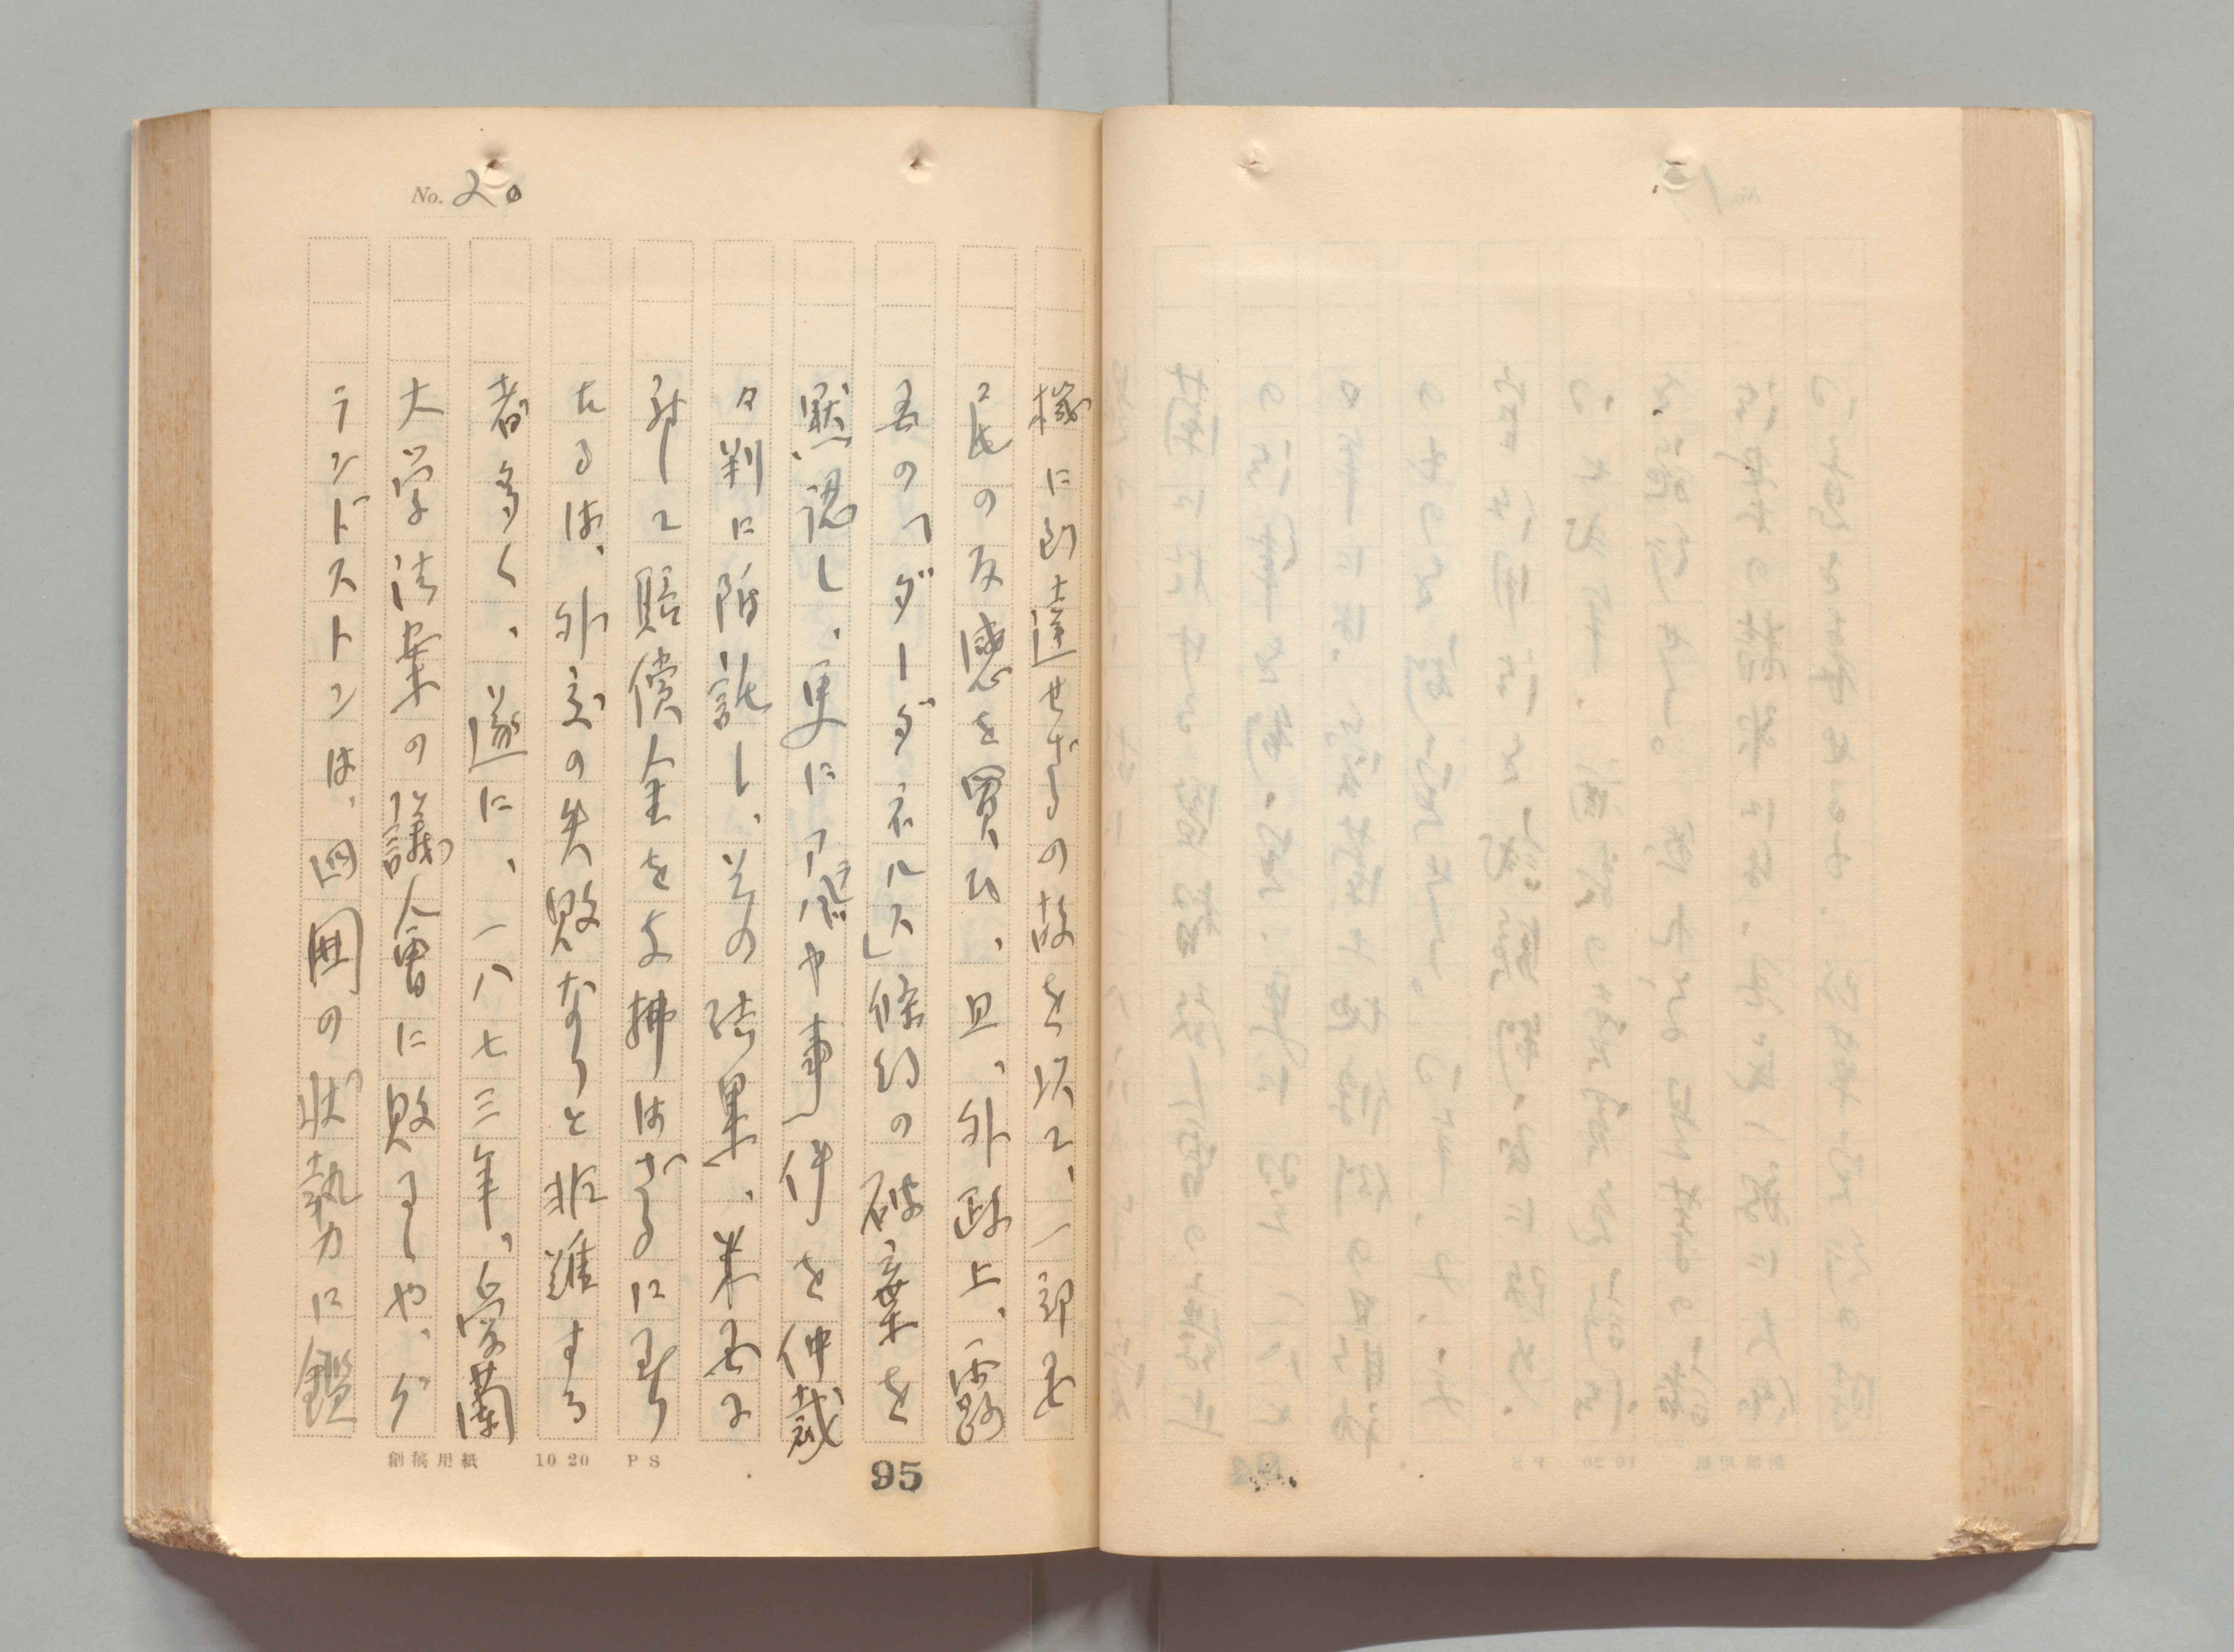 No. 20
機に到達せざるの故を以て、一部国
民の反感を買ひ、且、外政上、露
国の「ダーダネルス」條約の破棄を
黙認し、更にアラバマ事件を仲裁
々判に附託し、其の結果、米国に
対して賠償金を拂はざるに到り
たるは、外交の失敗なりと非難する
者多く、遂に、一八七三年、愛蘭
大学法案の議會に敗るゝや、グ
ランドストンは、四囲の状勢に鑑
創稿用紙 10 20 PS
95